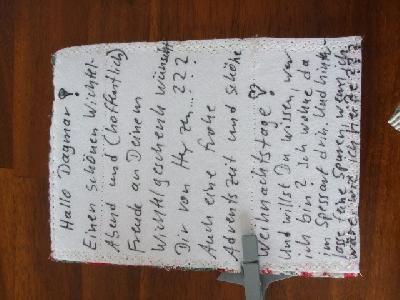 Hallo Dagmar!
Einen schönen Wichtel-
Abend und (hoffentlich)
Freude an Deinem
Wichtelgeschenk wünscht
Dir von Herzen...???
Auch eine frohe
Adventszeit und schöne
Weihnachtstage!
Und willst Du wissen, wer
ich bin? Ich wohne da
im Spessart drin. Und hinter-
lasse eine Spuren, wenn ich
wäre, wär ich hier ???